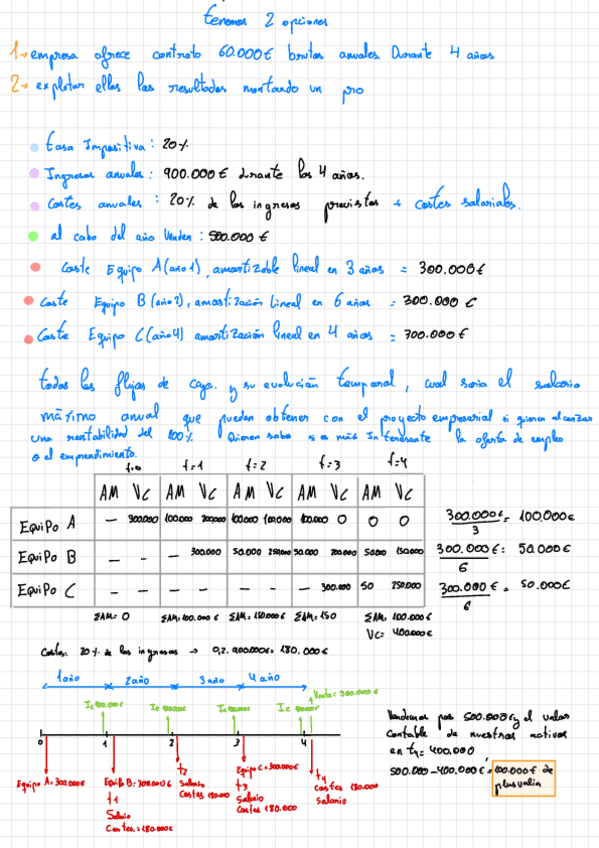 tenemos 2 opciones
1→ empresa ofrece contrato 60.000€ brutos anuales Durante 4 años
2→ explotar ellos los resultados montando un pro
• tasa Impositiva: 20%
• Ingresos anuales: 900.000€ durante los 4 años.
• Costes anuales: 20% de los ingresos previstos + costes salariales.
• al cabo del año Venden: 500.000€
• Coste Equipo A (año 1), amortizable lineal en 3 años = 300.000€
• Coste Equipo B (año 2), amortización Lineal en 6 años = 300.000€
• Coste Equipo C (año 4) amortización lineal en 4 años = 700.000€
todos los flujos de caja y su evolución temporal, cual seria el salario
máximo anual que pueden obtener con el proyecto empresarial si quieren alcanzar
una rentabilidad del 100%. Quieren saber si es más Interesante la oferta de empleo
o el emprendimiento.
t=0 t=1 t=2 t=3 t=4
AM VC AM VC AM VC AM VC AM VC
Equipo A — 300.000 100.000 200.000 100.000 100.000 100.000 0 0 0
300.000€/3 = 100.000€
Equipo B — - - 300.000 50.000 250.000 50.000 200.000 50.000 150.000
300.000€/6 = 50.000€
Equipo C — - - - - - - 300.000 50 250.000
300.000€/6 = 50.000€
ΣAM= 0 ΣAM=100.000€ ΣAM=150.000€ ΣAM=150 ΣAM: 100.000€
VC= 400.000€
Costes: 20% de los ingresos → 0,2. 900.000€ = 180.000€
1 año 2 año 3 año 4 año
Venta= 500.000€
0 1 2 3 4
Equipo A= 300.000€
Equipo B= 300.000€
t1
Salario
Costes=180.000€
t2
Salario
Costes 180.000
Equipo C=300.000€
t3
Salario
Costes 180.000
t4
Costes 180.000
Salario
Vendemos por 500.000€ y el valor
contable de nuestros activos
en t4=400.000
500.000-400.000€=100.000€ de
plusvalia